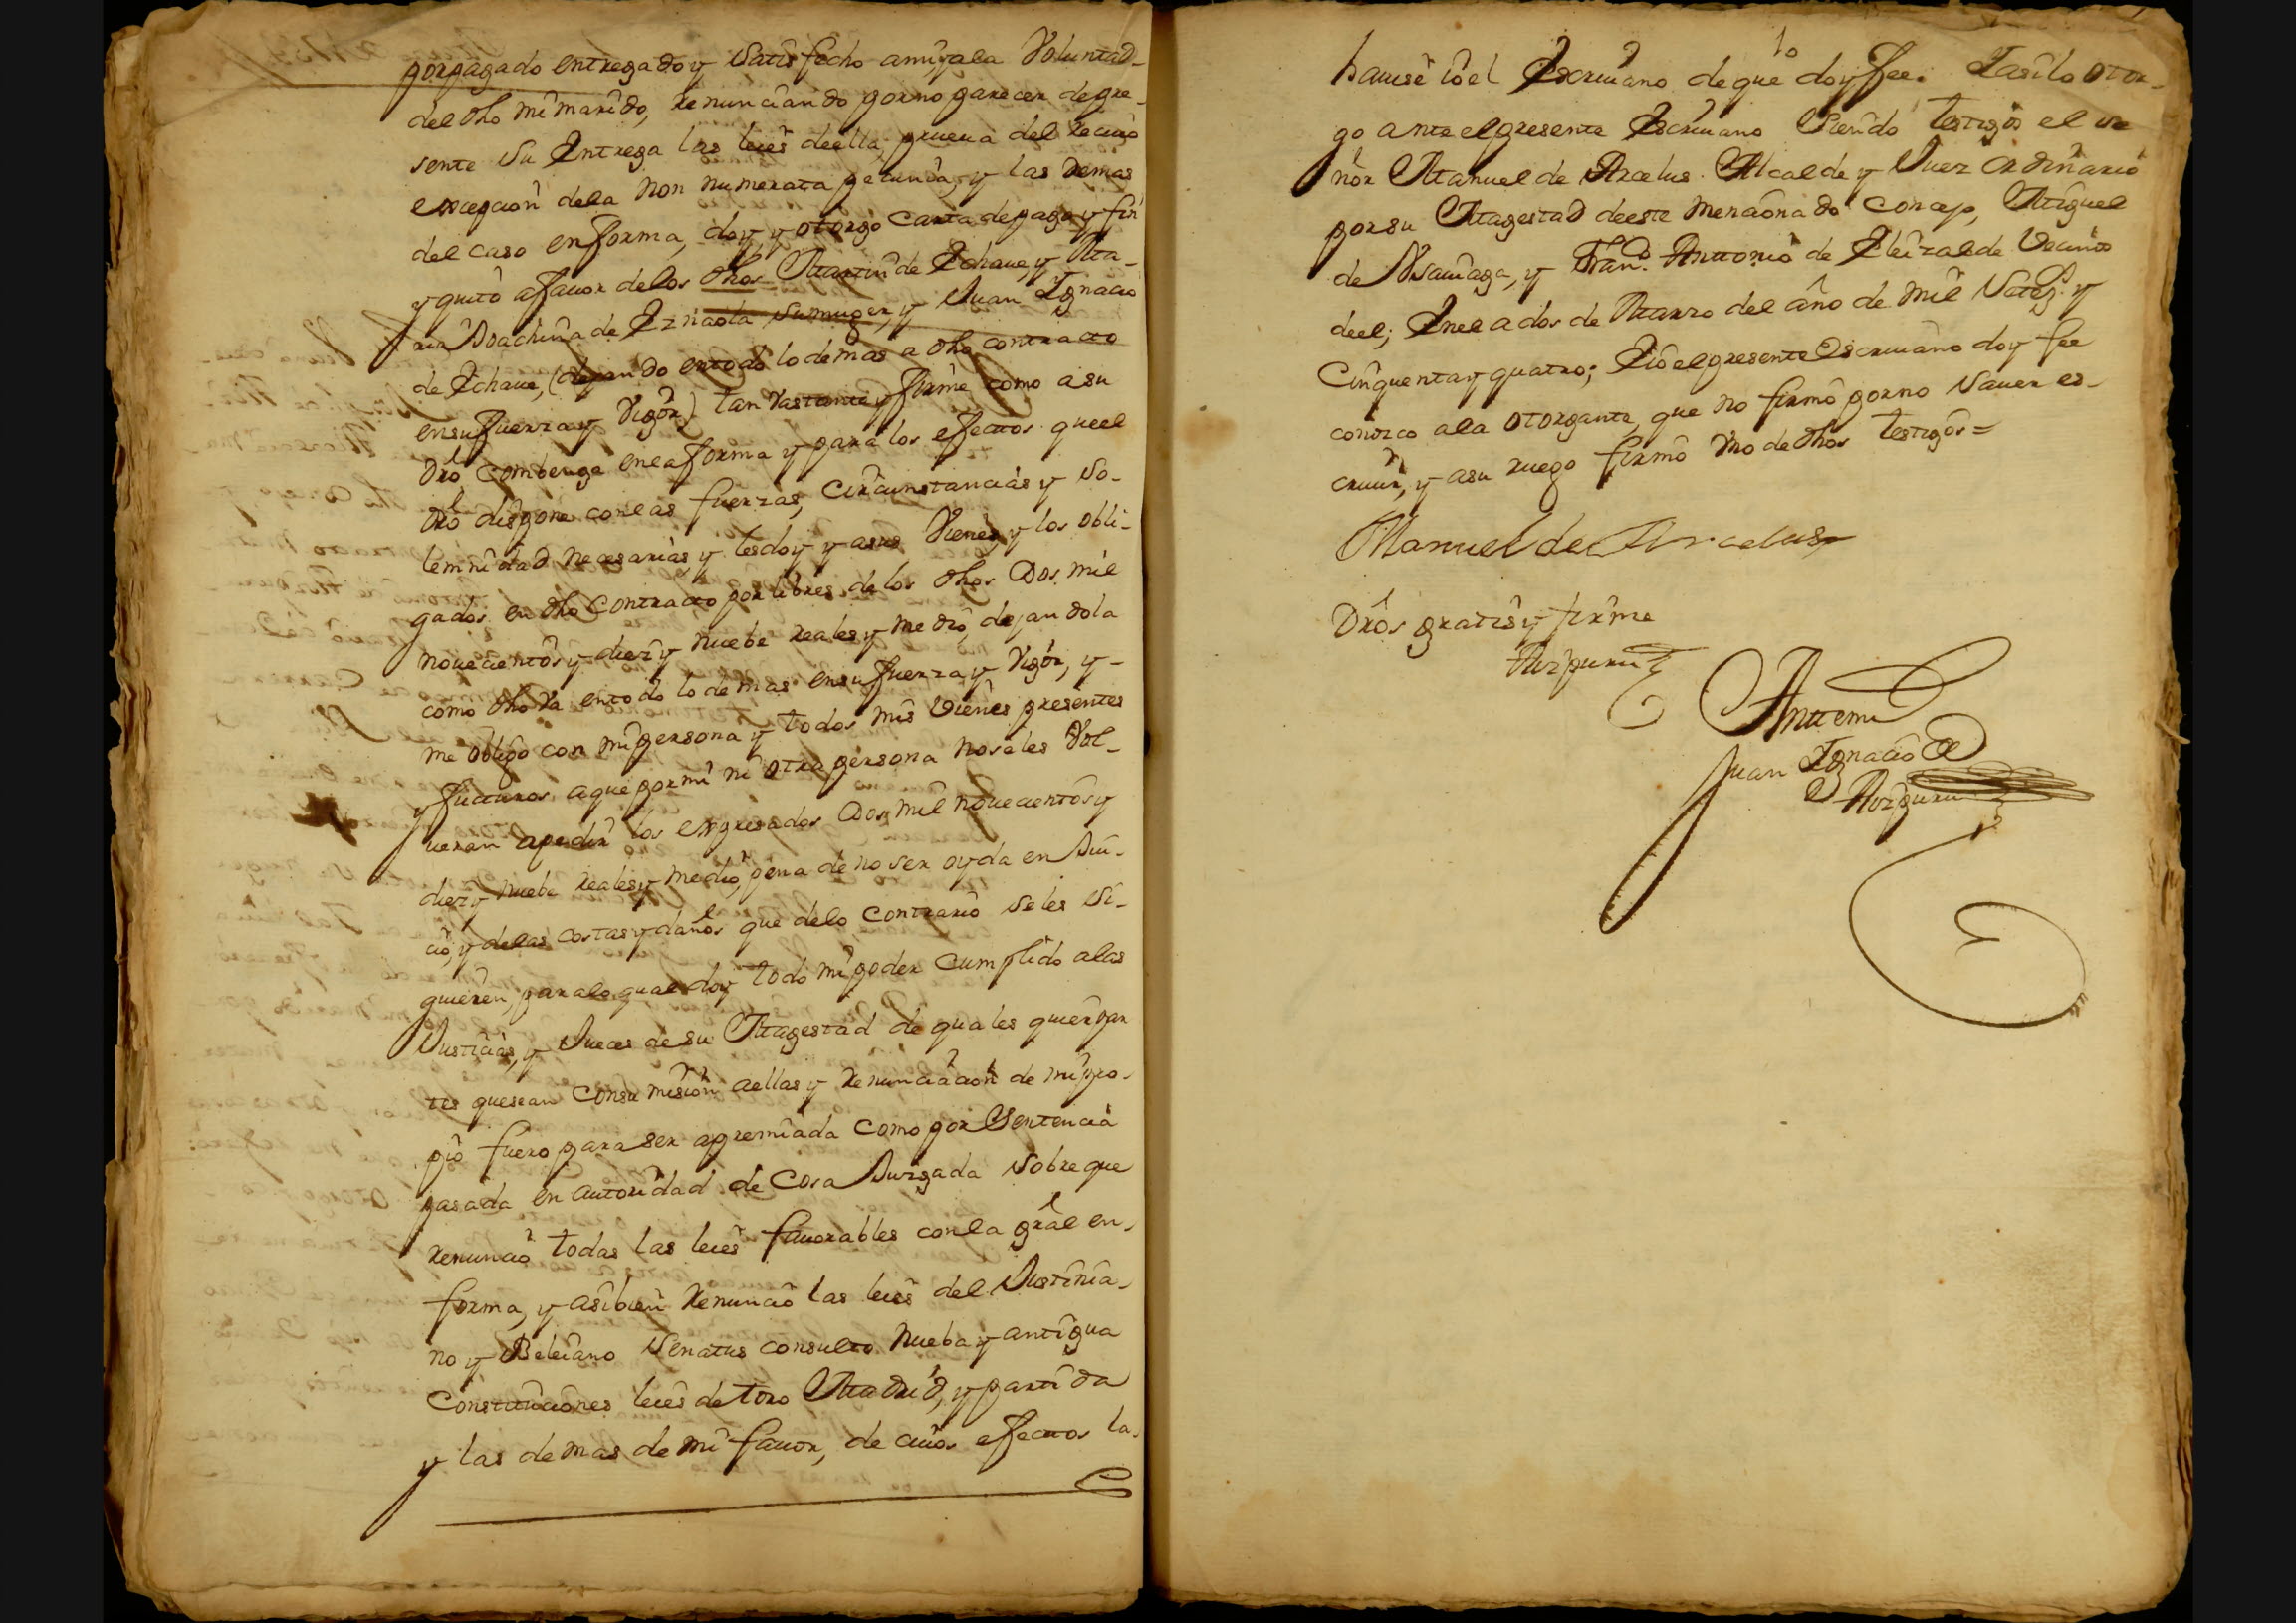 por pagado entregado y Satisfecho amiyala Voluntad
del dho mi marido, renunciando por no parecer de pre-
sente su Entrega las leies de ella, prueua del reciuo
excepcion dela non numerata pecunia, y las demas
del caso en forma, doy y otorgo Carta de pago y fin
y quito a fauor de los dhos Martin de Echaue y Ma-
ria Joachina de Iznaola su muger, y Juan Ignacio
de Echaue, (dejando en todo lo demas a dho contracto
en su fuerza y Vigor) tan Vastante y firme como a su
dro combenga en la forma y para los efectos que el
dro dispone con las fuerzas, circunstancias y So-
lemnidad necesarias, y les doy y a sus Vienes y los obli-
gados en dho Contracto por libres de los dhos Dos mil
novecientos y diez y nuebe reales y medio, dejandola
como dho Va en todo lo demas en su fuerza y Vigor, y
me obligo con mi persona y todos mis Vienes presentes
y futuros a que por mi ni otra persona no se les Vol-
ueran apedir los expresados Dos mil nouecientos y
diez y nuebe reales y medio, pena de no ser oyda en Jui-
cio, y de las costas y daños que de lo contrario se les si-
guieren, para lo qual doy todo mi poder cumplido alas
Justicias, y Jueces de su Magestad de quales quier par
tes que sean con sumision aellas y renunciacion de mi pro-
pio fuero para ser apremiada como por Sentencia
pasada en autoridad de Cosa Juzgada sobre que
renuncio todas las leies fauorables con la gral en
forma, y asibien renuncio las leies del Justinia-
no y Beleiano Senatus consulto nueba y antigua
Constituciones leies de toro Madrid, y partida
y las demas de mi fauor, de cuios effectos la
hauise io el Escriuano de que doy fee. Iasilo otor-
go ante el presente Escriuano Siendo testigos el se
ñor Manuel de Arcelus Alcalde y Juez ordinario
por su Magestad de este mencionado Concejo, Miguel
de Usauiaga, y Franco Anttonio de Eleizalde Vecinos
de el; En el a dos de Marzo del año de mil Setez.s y
Cinquenta y quatro; E io el presente Escriuano doy fee
conozco ala otorgante, que no firmó por no Sauer es-
criuir, y asu ruego firmó Vno de dhos testigos =
Manuel de Arcelus
Dros gratis y firme
Aizpuru
Antte mi
Juan Ignacio de
Aizpuru